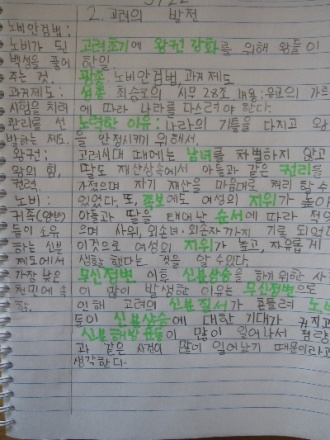 2. 고려의 발전
노비안검법:
노비가 된 고려초기에 왕권 강화를 위해 왕들이
백성을 풀어 한일
주는 것. 광종: 노비안검법, 과거제도
과거제도: 성종: 최승로의 시무 28조 유교의 가르
시험을 치뤄 에 따라 나라를 다스려야 한다.
관리를 선 노력한 이유: 나라의 기틀을 다지고 왕
발하는 제도. 을 안정시키기 위해서.
왕권: 고려시대 때에는 남녀를 차별하지 않고
왕의 힘, 딸도 재산상속에서 아들과 같은 권리를
권력 가졌으며 자기 재산을 마음대로 처리 할 수
노비: 있었다. 또, 족보에도 여성의 지위가 높아
귀족(양반) 아들과 딸을 태어난 순서에 따라 적
들이 소유 으며 사위, 외손녀, 외손자까지 기록 되었
하는 신분 이것으로 여성의 지위가 높고, 자유롭게
제도에서 생활 했다는 것을 알 수 있다.
가장 낮은 무신정변 이후 신분상승을 하기위한 사
천민에 속 이 많이 발생한 이유는 무신정변으로
함. 인해 고려의 신분질서가 흔들려 노비
들이 신분상승에 대한 기대가 커지고
신분해방 운동이 많이 일어나서
과 같은 사건이 많이 일어났기 때문이라고
생각한다.